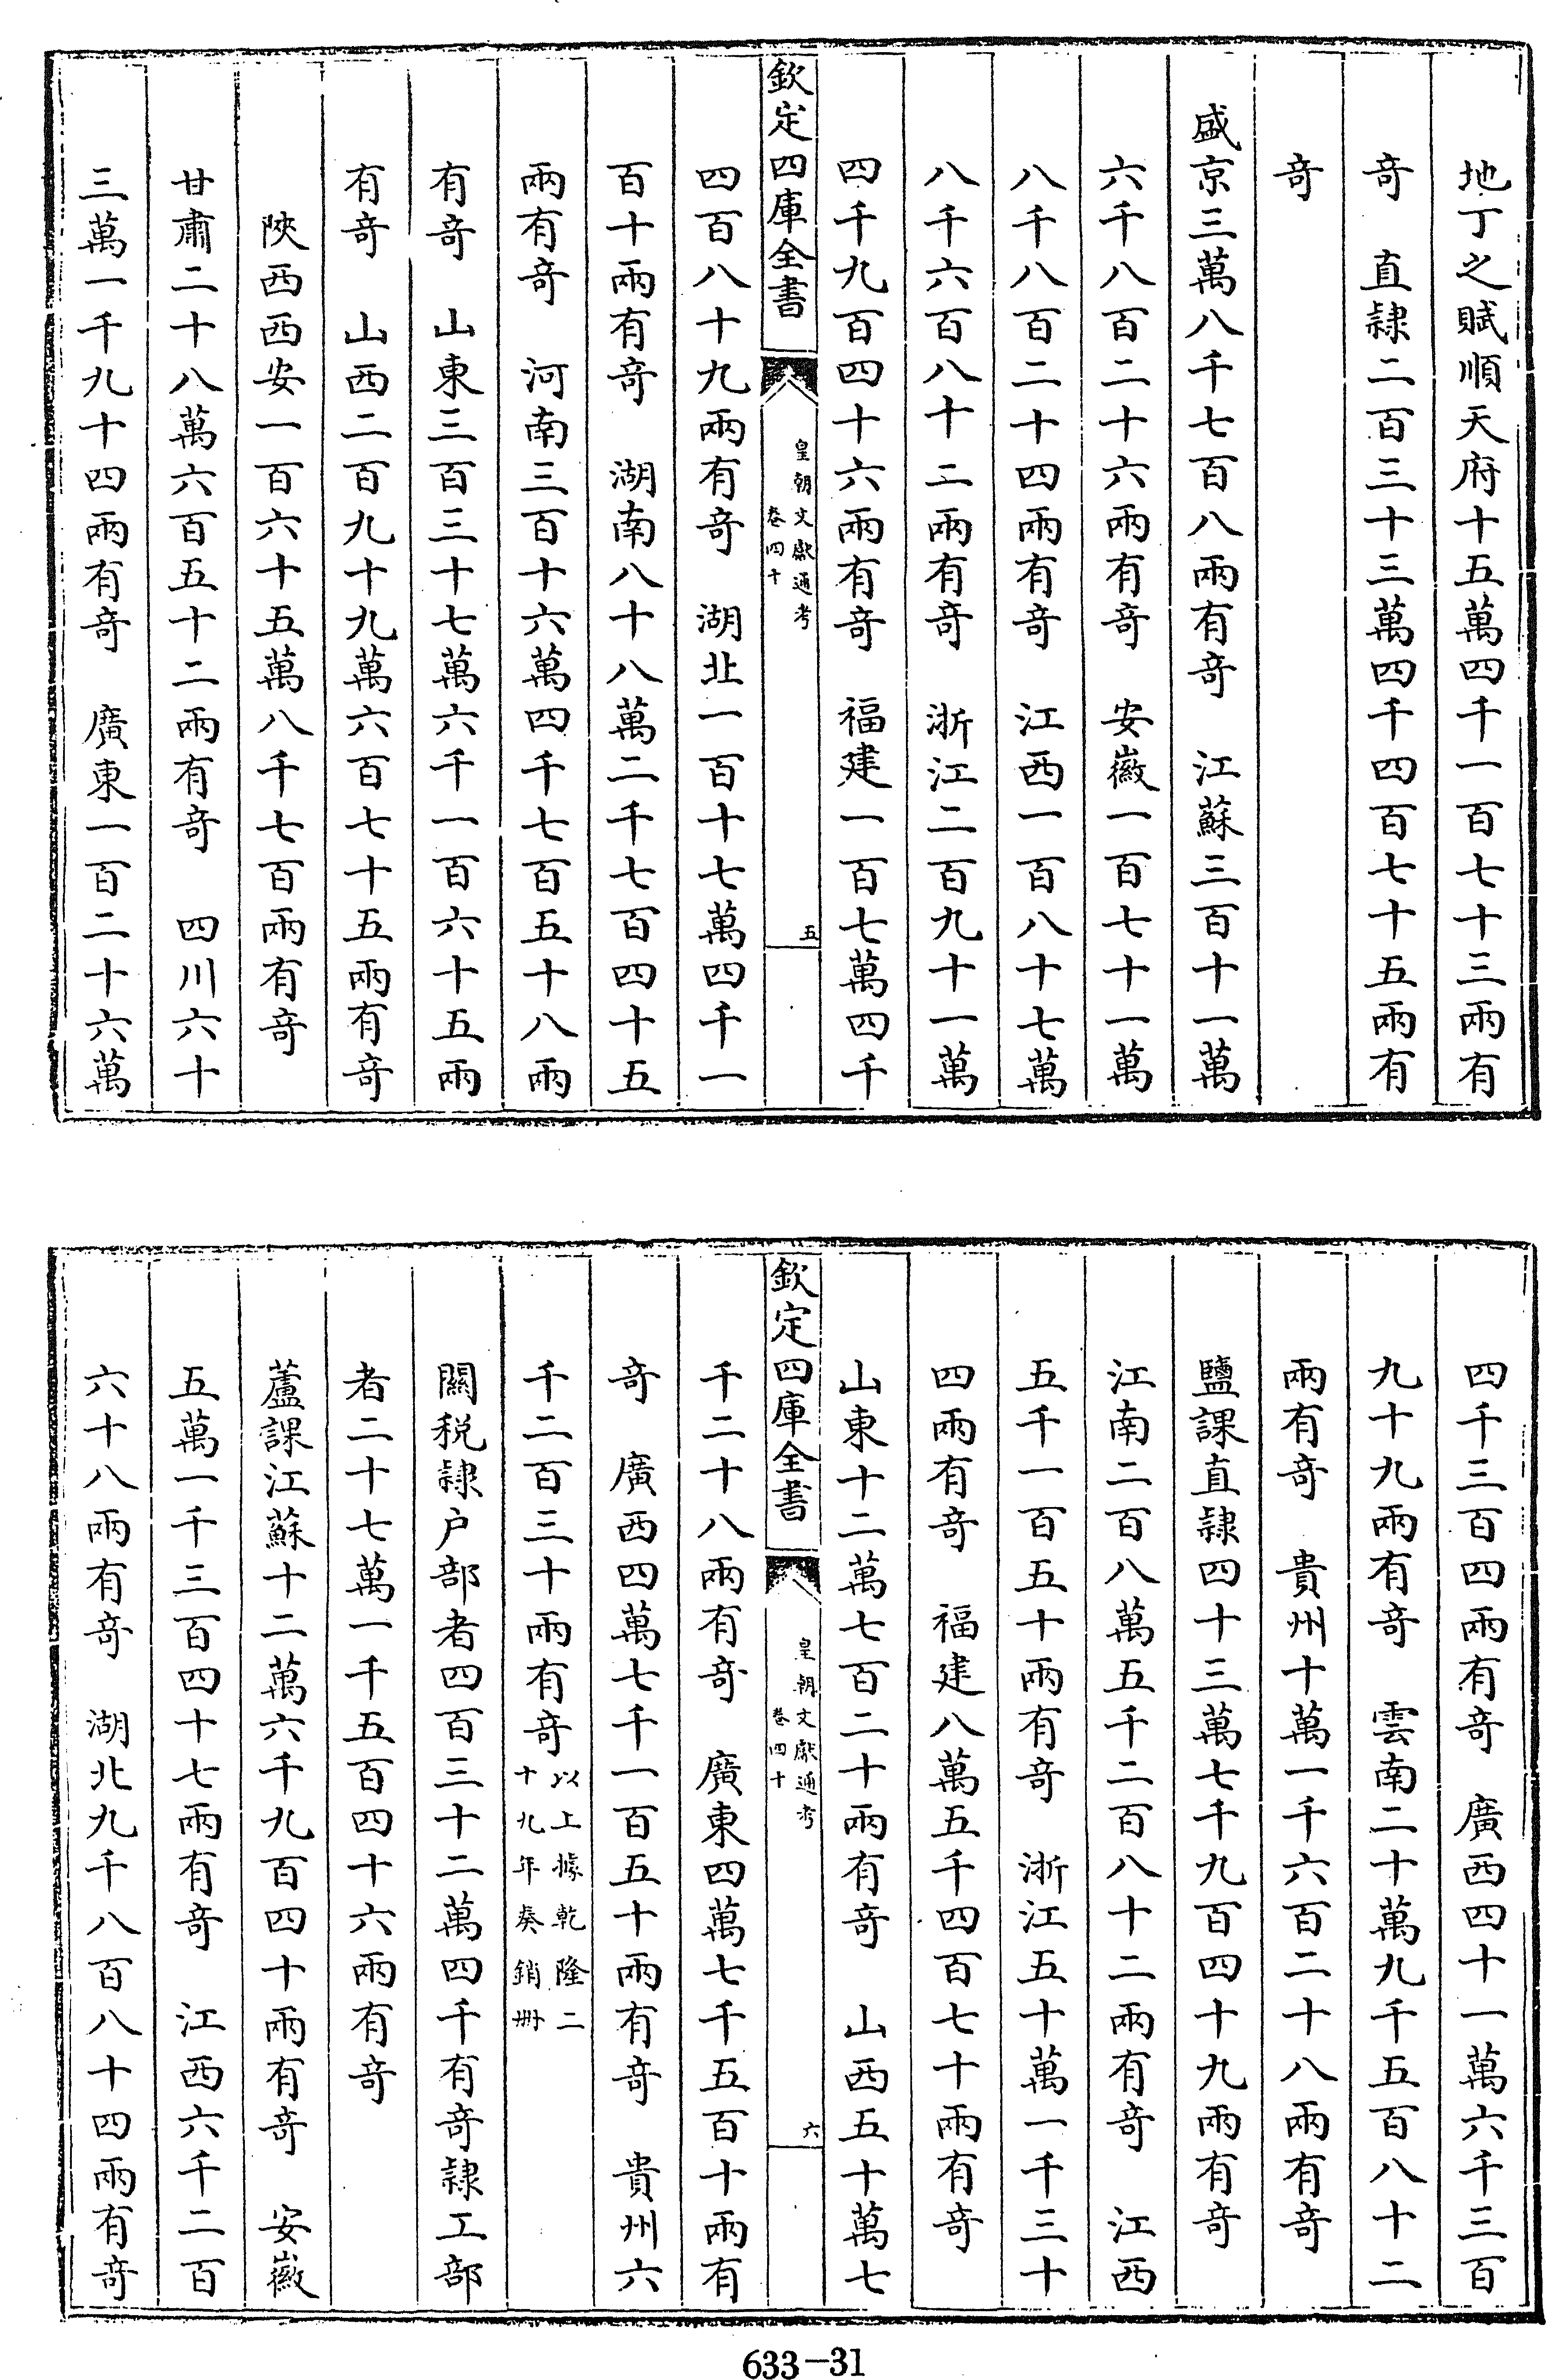 地丁之賦順天府十五萬四千一百七十三兩有
奇　直隸二百三十三萬四千四百七十五兩有
奇
盛京三萬八千七百八兩有奇　江蘇三百十一萬
六千八百二十六兩有奇　安徽一百七十一萬
八千八百二十四兩有奇　江西一百八十七萬
八千六百八十二兩有奇　浙江二百九十一萬
四千九百四十六兩有奇　福建一百七萬四千
欽定四庫全書
皇朝文獻通考
卷四十
五
四百八十九兩有奇　湖北一百十七萬四千一
百十兩有奇　湖南八十八萬二千七百四十五
兩有奇　河南三百十六萬四千七百五十八兩
有奇　山東三百三十七萬六千一百六十五兩
有奇　山西二百九十九萬六百七十五兩有奇
陝西西安一百六十五萬八千七百兩有奇
甘肅二十八萬六百五十二兩有奇　四川六十
三萬一千九十四兩有奇　廣東一百二十六萬
四千三百四兩有奇　廣西四十一萬六千三百
九十九兩有奇　雲南二十萬九千五百八十二
兩有奇　貴州十萬一千六百二十八兩有奇
鹽課直隸四十三萬七千九百四十九兩有奇
江南二百八萬五千二百八十二兩有奇　江西
五千一百五十兩有奇　浙江五十萬一千三十
四兩有奇　福建八萬五千四百七十兩有奇
山東十二萬七百二十兩有奇　山西五十萬七
欽定四庫全書
皇朝文獻通考
卷四十
六
千二十八兩有奇　廣東四萬七千五百十兩有
奇　廣西四萬七千一百五十兩有奇　貴州六
千二百三十兩有奇以上據乾隆二
十九年奏銷冊
關税隸户部者四百三十二萬四千有奇隸工部
者二十七萬一千五百四十六兩有奇
蘆課江蘇十二萬六千九百四十兩有奇　安徽
五萬一千三百四十七兩有奇　江西六千二百
六十八兩有奇　湖北九千八百八十四兩有奇
633-31